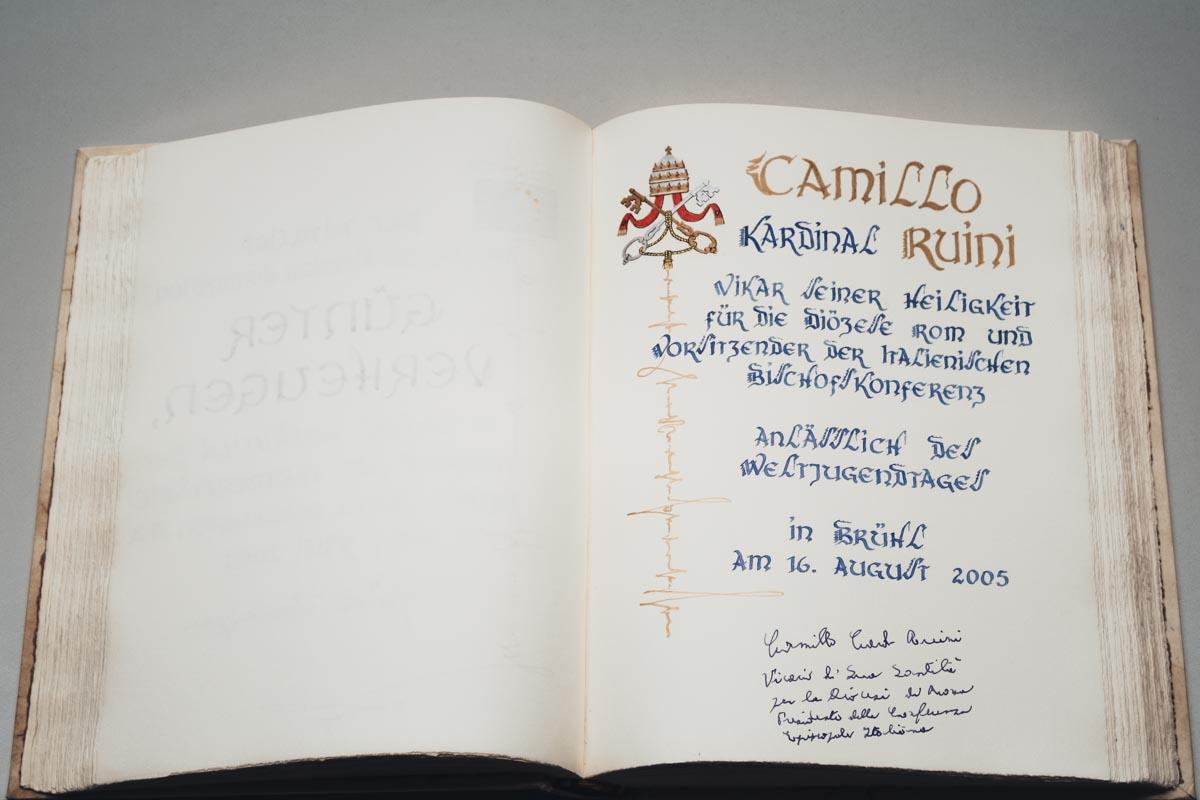 GÜNTER
VERHEUGEN,
CAMILLO
KARDINAL RUINI
VIKAR SEINER HEILIGKEIT
FÜR DIE DIÖZESE ROM UND
VORSITZENDER DER ITALIENISCHEN
BISCHOFSKONFERENZ
ANLÄSSLICH DES
WELTJUGENDTAGES
IN BRÜHL
AM 16. AUGUST 2005
Camillo Card Ruini
Vicario di Sua Santità
per la Diocesi di Roma
Presidente della Conferenza
Episcopale Italiana